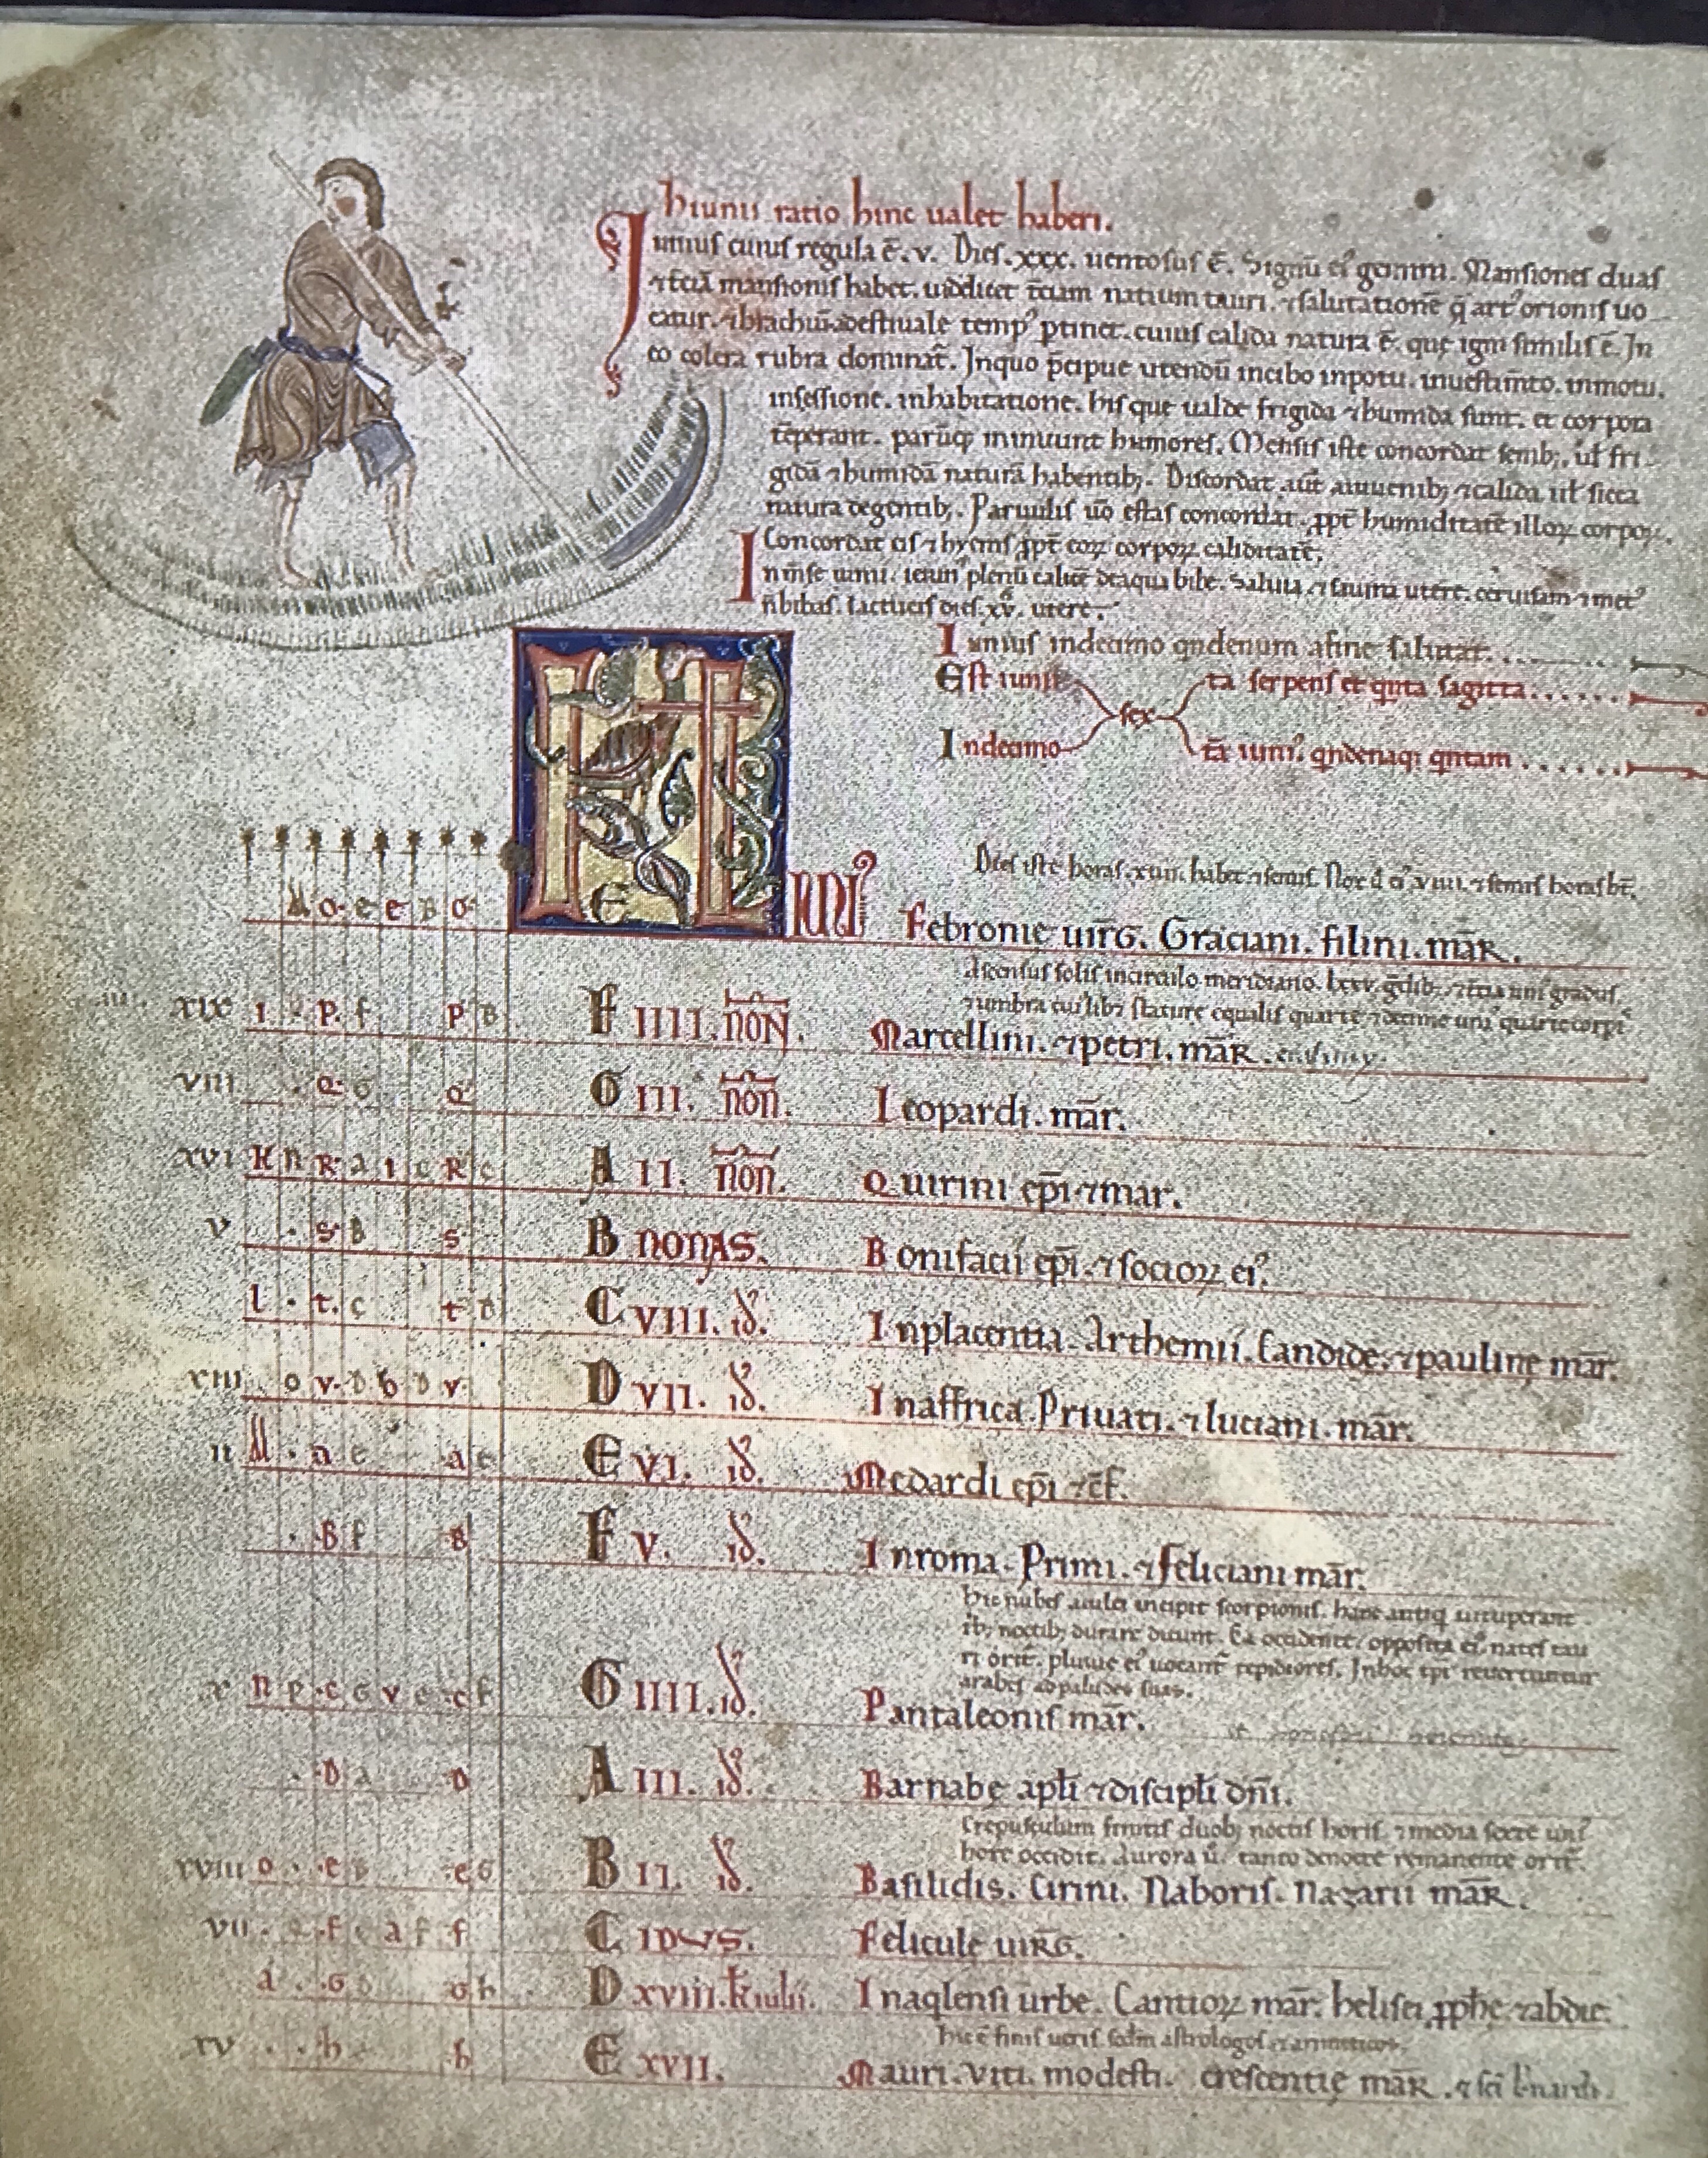 hiunii ratio hinc ualet haberi.
Iunius cuius regula ē. v. Dies .xxx. uentosus ē. Signū eiꝰ gemini. Mansiones duas
⁊ tciā mansionis habet. uidelicet t̄ciam natium tauri. ⁊ salutationē q̄ artꝰ orionis uo
catur. ⁊ brachiū. ⁊ ad estiuale tempꝰ ꝑtinet. cuius calida natura ē. quę igni similis ē. In
eo colera rubra dominat̄. In quo p̄cipue utendū in cibo in potu. in uestim̄to. in motu.
in sessione. in habitatione. his que ualde frigida ⁊ humida sunt. et corpora
tēperant. parūq; minuunt humores. Mensis iste concordat senib;. ut fri
gidā ⁊ humidā naturā habentib;. Discordat aūt iuuenib; ⁊ calida ut sicca
natura degentib;. Paruulis uō estas concordat. ꝓpt̄ humiditatē illoꝝ corpoꝝ.
Concordat eis ⁊ hyems ꝓpt̄ eoꝝ corpoꝝ caliditatē.
In m̄se iunii. ieiunꝰ plenū calicē de aqua bibe. Saluia ⁊ sauina utere. ceruisam ⁊ metꝰ
n̄ bibas. lactucis dies .xv. utere.
Iunius in decimo qndenum a fine salutat.
Est iunii
In decimo
sex
ta serpens et qnta sagitta
tā iuniꝰ qndenaqꝫ qntam
Dies iste horas .xviii. habet ⁊ semis. Nox uiii. ⁊ semis horas hēt.
A o e e B o
KL E IUNIꝰ Febronie uirg. Graciani. filini. mār.
Ascensus solis in circulo meridiano. lxxv. gdib; ⁊ tcia uniꝰ gradus.
⁊ umbra cuiꝰlib; stature equalis quarte ⁊ decime uniꝰ quarte corpꝰ
XIX I P f P B F IIII. NON. Marcellini. ⁊ petri. mār.
VIII Q G Q G III. non. Leopardi. mār.
XVI K n R a I c R c A II. non. Quirini ep̄i ⁊ mar.
V S B S B NONAS. Bonifacii ep̄i. ⁊ socioꝝ eiꝰ.
l t c t d C VIII. id. In placentia. Arthemii. Candide. ⁊ pauline mār.
XIII o v d b d v D VII. id. In affrica. Priuati. ⁊ luciani. mār.
II M a e a e E VI. id. Medardi ep̄i ⁊ cf̄.
B f B F V. id. In roma. Primi. ⁊ feliciani mār.
Hic nubes aculei incipit scorpionis. hanc antiq uituperant
ib; noctib; durare dicunt. Ea occidente. opposita eiꝰ nates tau
ri orit̄. pluuie eiꝰ uocant̄ tepidiores. In hoc tpr̄ reuertuntur
arabes ad paludes suas.
X n p c G v e c f G IIII. id. Pantaleonis mār.
D a D A III. id. Barnabe apl̄i ⁊ discipl̄i dn̄i.
Crepusculum finitis duob; noctis horis. ⁊ media fere uniꝰ
hore occidit. Aurora ū. tanto de nocte remanente orit̄.
XVIII o e b e G B II. id. Basilidis. Cirini. Naboris. Nazarii mār.
VII f c a f f C IDUS. Felicule uirg.
d G d G h D XVIII. kl iulii. In aqlensi urbe. Cantioꝝ mār. helisei ꝓphe. ⁊ abdie.
Hic ē finis ueris scdm astrologos
XV h h E XVII. Mauri. Viti. modesti. crescentie mār. ⁊ sci